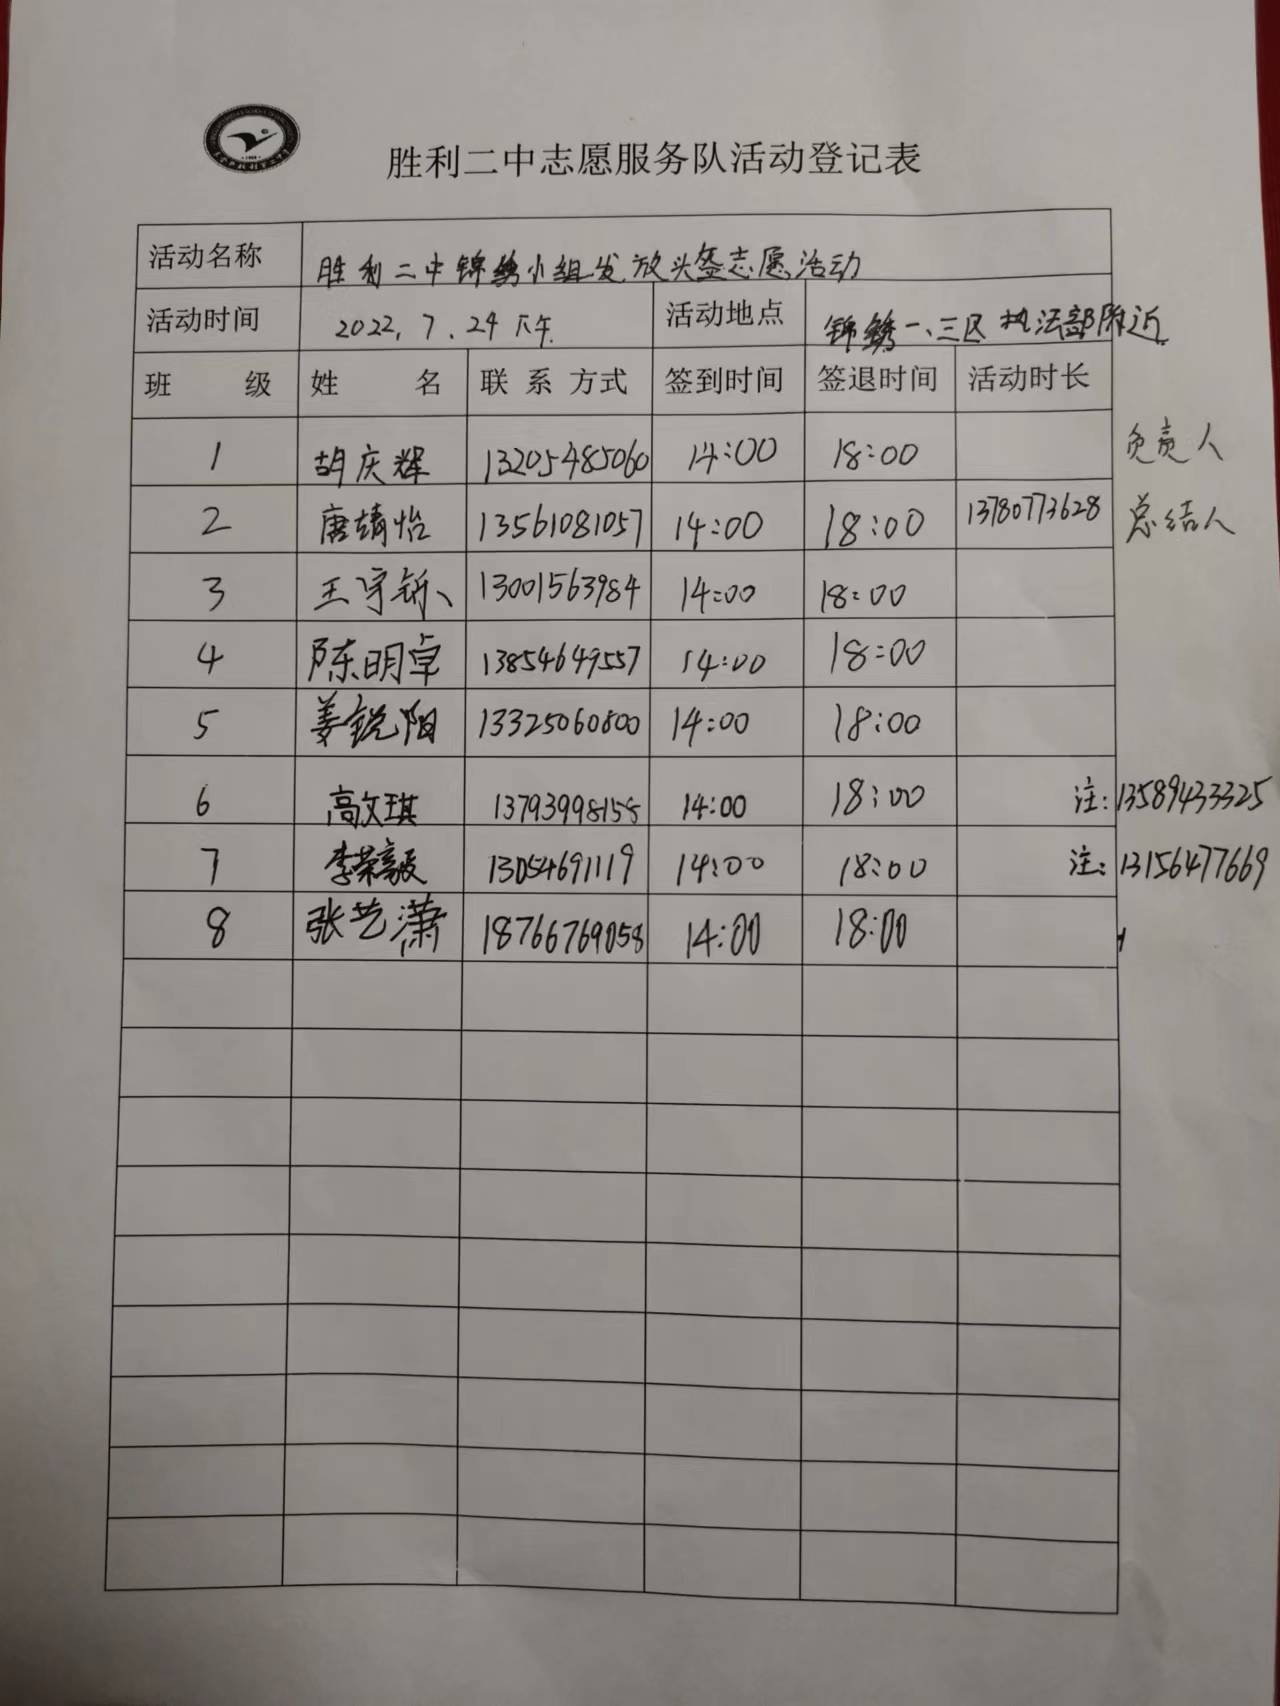 胜利二中志愿服务队活动登记表
活动名称 胜利二中锦绣小组发放头盔志愿活动
活动时间 2022.7.24 下午 活动地点 锦绣一、三区执法部附近
班 级 姓 名 联 系 方式 签到时间 签退时间 活动时长
1 胡庆辉 13205485060 14:00 18:00 负责人
2 唐靖怡 13561081057 14:00 18:00 13780773628 总结人
3 王宇钚 13001563984 14:00 18:00
4 陈明卓 13854649557 14:00 18:00
5 姜锐阳 13325060800 14:00 18:00
6 高文琪 13793998158 14:00 18:00 注:13589433325
7 李荣毅 13054691119 14:00 18:00 注:13156477669
8 张艺潇 18766769058 14:00 18:00